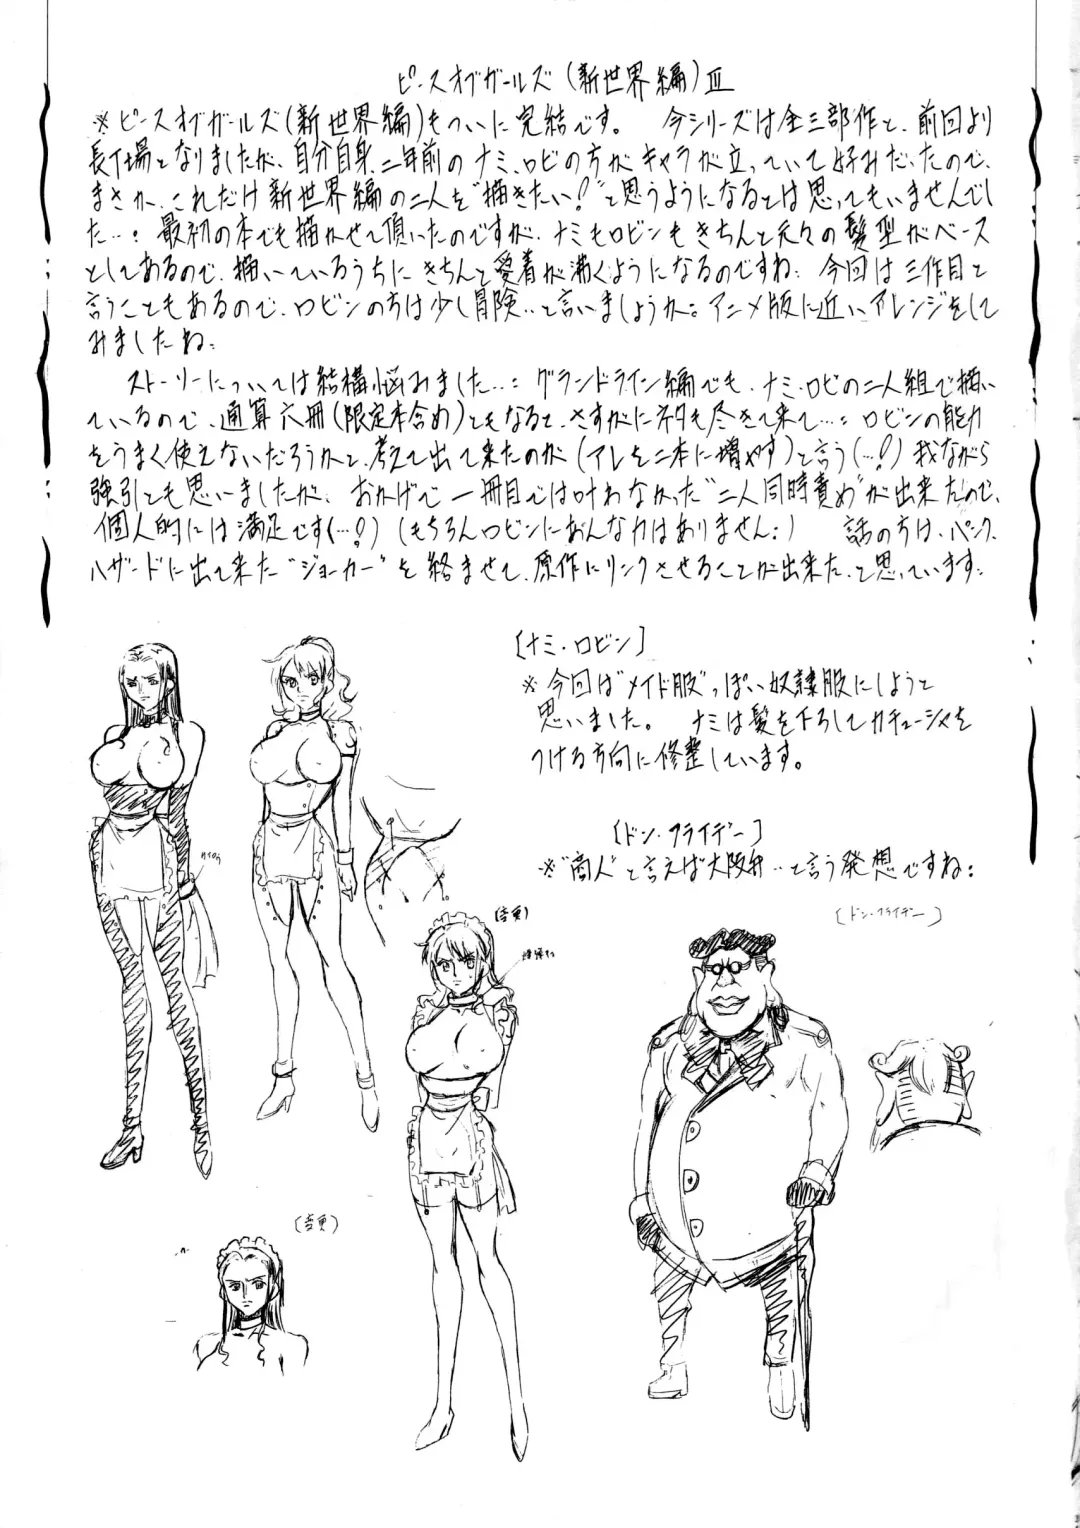 ピースオブガールズ(新世界編)Ⅲ
※ピースオブガールズ(新世界編)もついに完結です。 今シリーズは全三部作と、前回より
長丁場となりましたが、自分自身、二年前のナミ、ロビの方がキャラが立っていて好みだったので、
まさか、これだけ新世界編の二人を“描きたい!”と思うようになるとは思ってもいませんでし
た…: 最初の本でも描かせて頂いたのですが、ナミもロビンもきちんと元々の髪型がベース
としてあるので、描いているうちにきちんと愛着が沸くようになるのですね: 今回は三作目と
言うこともあるので、ロビンの方は少し冒険‥と言いましょうか: アニメ版に近いアレンジをして
みましたね:
ストーリーについては結構悩みました…: グランドライン編でも、ナミ・ロビの二人組で描い
ているので、通算六冊(限定本含め)ともなると、さすがにネタも尽きて来て…: ロビンの能力
をうまく使えないだろうかと、考えて出て来たのが(アレを二本に増やす)と言う(…!)我ながら
強引とも思いましたが、おかげで一冊目では叶わなかった“二人同時責め”が出来たので、
個人的には満足です(…!) (もちろんロビンにあんな力はありません:) 話の方は、パンク
ハザードに出て来た“ジョーカー”を絡ませて、原作にリンクさせることが出来た、と思っています:
[ナミ・ロビン]
※今回は“メイド服”っぽい奴隷服にしようと
思いました。 ナミは髪を下ろしてカチューシャを
つける方向に修整しています。
[ドン・フライデー]
※“商人”と言えば大阪弁‥と言う発想ですね:
(変更)
[ドン・フライデー]
(変更)